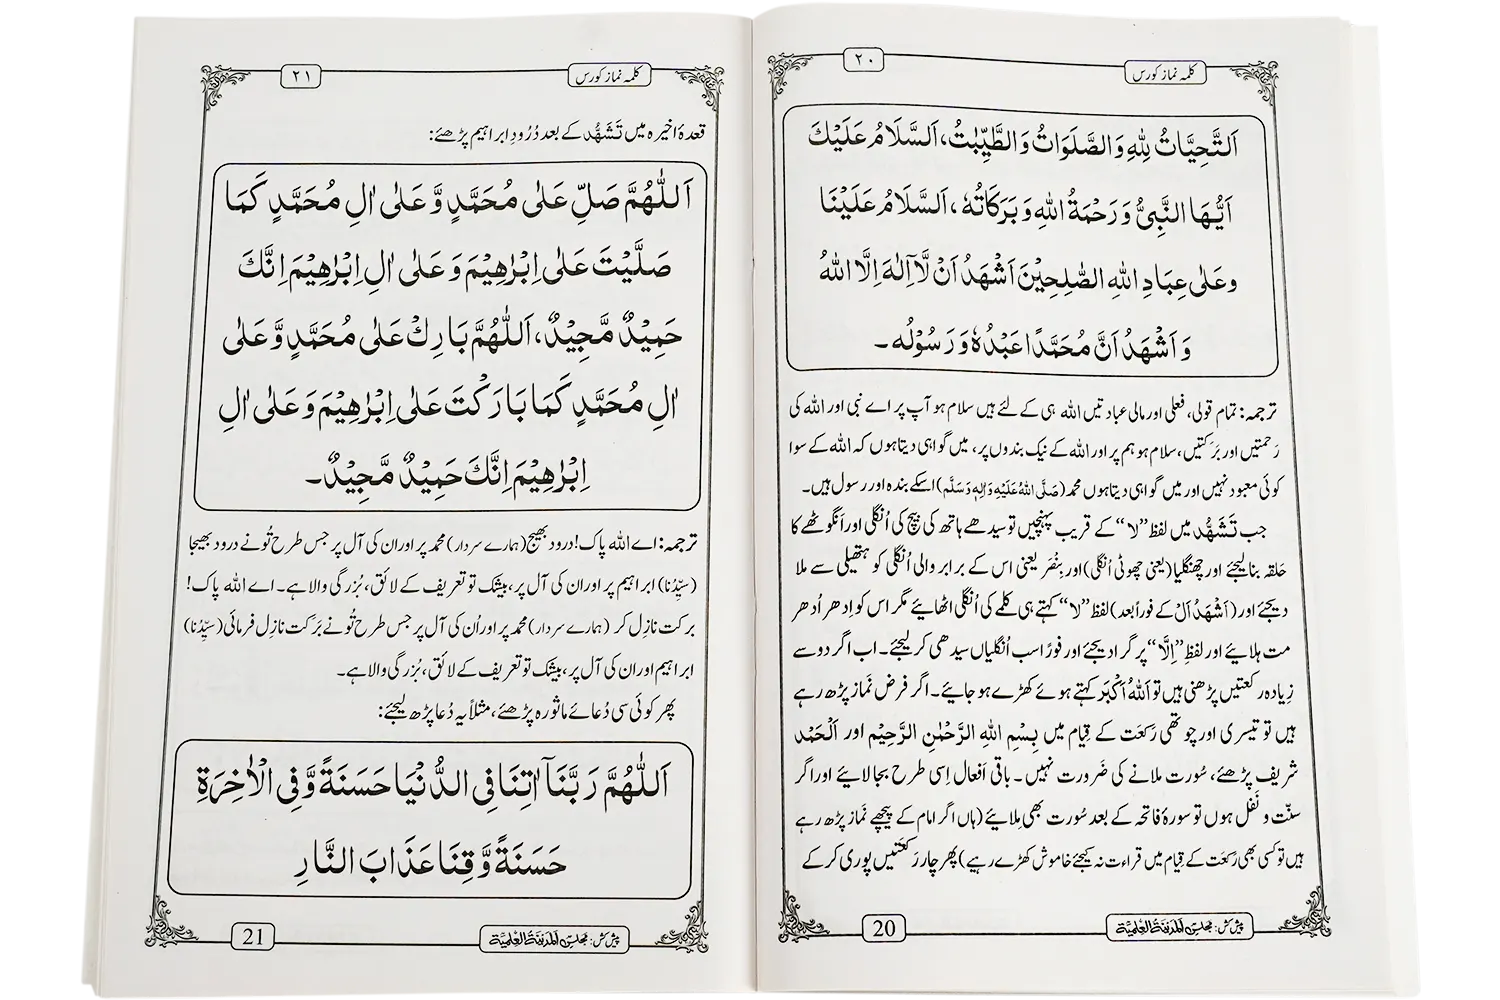 ٢٠
کلمہ نماز کورس
اَلتَّحِيَّاتُ لِلّٰهِ وَالصَّلَوَاتُ وَالطَّيِّبٰتُ، اَلسَّلَامُ عَلَيْكَ
اَيُّهَا النَّبِيُّ وَرَحْمَةُ اللّٰهِ وَبَرَكَاتُهٗ، اَلسَّلَامُ عَلَيْنَا
وعَلٰى عِبَادِ اللّٰهِ الصّٰلِحِيْنَ اَشْهَدُ اَنْ لَّآ اِلٰهَ اِلَّا اللّٰهُ
وَ اَشْهَدُ اَنَّ مُحَمَّدًا عَبْدُهٗ وَ رَسُوْلُه۔
ترجمہ: تمام قولی، فعلی اور مالی عبادتیں اللہ ہی کے لئے ہیں سلام ہو آپ پر اے نبی اور اللہ کی
رَحمتیں اور بَرَکتیں، سلام ہو ہم پر اور اللہ کے نیک بندوں پر، میں گواہی دیتا ہوں کہ اللہ کے سوا
کوئی معبود نہیں اور میں گواہی دیتا ہوں محمد (صَلَّی اللهُ عَلَيْهِ وَاٰلِهٖ وَسَلَّم) اسکے بندہ اور رسول ہیں۔
جب تَشَہُّد میں لفظ ”لا“ کے قریب پہنچیں تو سیدھے ہاتھ کی بیچ کی اُنگلی اور اَنگوٹھے کا
حَلقہ بنا لیجئے اور چھنگلیا (یعنی چھوٹی اُنگلی) اور بِنْصَر یعنی اس کے برابر والی اُنگلی کو ہتھیلی سے ملا
دیجئے اور (اَشْهَدُ اَلْ کے فوراً بعد) لفظ ”لا“ کہتے ہی کلمے کی اُنگلی اٹھائیے مگر اس کو اِدھر اُدھر
مت ہلائیے اور لفظِ ”اِلَّا“ پر گرا دیجئے اور فوراً سب اُنگلیاں سیدھی کر لیجئے۔ اب اگر دو سے
زِیادہ رکعتیں پڑھنی ہیں تو اَللهُ اَكْبَر کہتے ہوئے کھڑے ہو جائیے۔ اگر فرض نَماز پڑھ رہے
ہیں تو تیسری اور چوتھی رَکعَت کے قِیام میں بِسْمِ اللهِ الرَّحْمٰنِ الرَّحِيْم اور اَلْحَمْد
شریف پڑھئے، سُورت ملانے کی ضَرورت نہیں۔ باقی اَفعال اِسی طرح بجا لائیے اور اگر
سنّت و نَفل ہوں تو سورۂ فاتحہ کے بعد سُورت بھی مِلائیے (ہاں اگر امام کے پیچھے نَماز پڑھ رہے
ہیں تو کسی بھی رَکعَت کے قِیام میں قراءت نہ کیجئے خاموش کھڑے رہیے) پھر چار رَکعَتیں پوری کر کے
پیش کش: مجلس اَلْمَدِيْنَةُ الْعِلْمِيَّة
20
٢١
کلمہ نماز کورس
قعدۂ اخیرہ میں تَشَہُّد کے بعد دُرُودِ ابراہیم پڑھئے:
اَللّٰهُمَّ صَلِّ عَلٰى مُحَمَّدٍ وَّعَلٰى اٰلِ مُحَمَّدٍ كَمَا
صَلَّيْتَ عَلٰى اِبْرٰهِيْمَ وَ عَلٰى اٰلِ اِبْرٰهِيْمَ اِنَّكَ
حَمِيْدٌ مَّجِيْدٌ، اَللّٰهُمَّ بَارِكْ عَلٰى مُحَمَّدٍ وَّعَلٰى
اٰلِ مُحَمَّدٍ كَمَا بَارَكْتَ عَلٰى اِبْرٰهِيْمَ وَ عَلٰى اٰلِ
اِبْرٰهِيْمَ اِنَّكَ حَمِيْدٌ مَّجِيْدٌ۔
ترجمہ: اے اللہ پاک! درود بھیج (ہمارے سردار) محمد پر اور ان کی آل پر جس طرح تُو نے درود بھیجا
(سیِّدُنا) ابراہیم پر اور ان کی آل پر، بیشک تو تعریف کے لائق، بُزرگی والا ہے۔ اے اللہ پاک!
برکت نازِل کر (ہمارے سردار) محمد پر اور اُن کی آل پر جس طرح تُو نے بَرَکت نازِل فرمائی (سیِّدُنا)
ابراہیم اور ان کی آل پر، بیشک تو تعریف کے لائق، بُزرگی والا ہے۔
پھر کوئی سی دُعائے ماثورہ پڑھئے، مثلاً یہ دُعا پڑھ لیجئے:
اَللّٰهُمَّ رَبَّنَاۤ اٰتِنَا فِي الدُّنْيَا حَسَنَةً وَّفِي الْاٰخِرَةِ
حَسَنَةً وَّقِنَا عَذَابَ النَّارِ
پیش کش: مجلس اَلْمَدِيْنَةُ الْعِلْمِيَّة
21